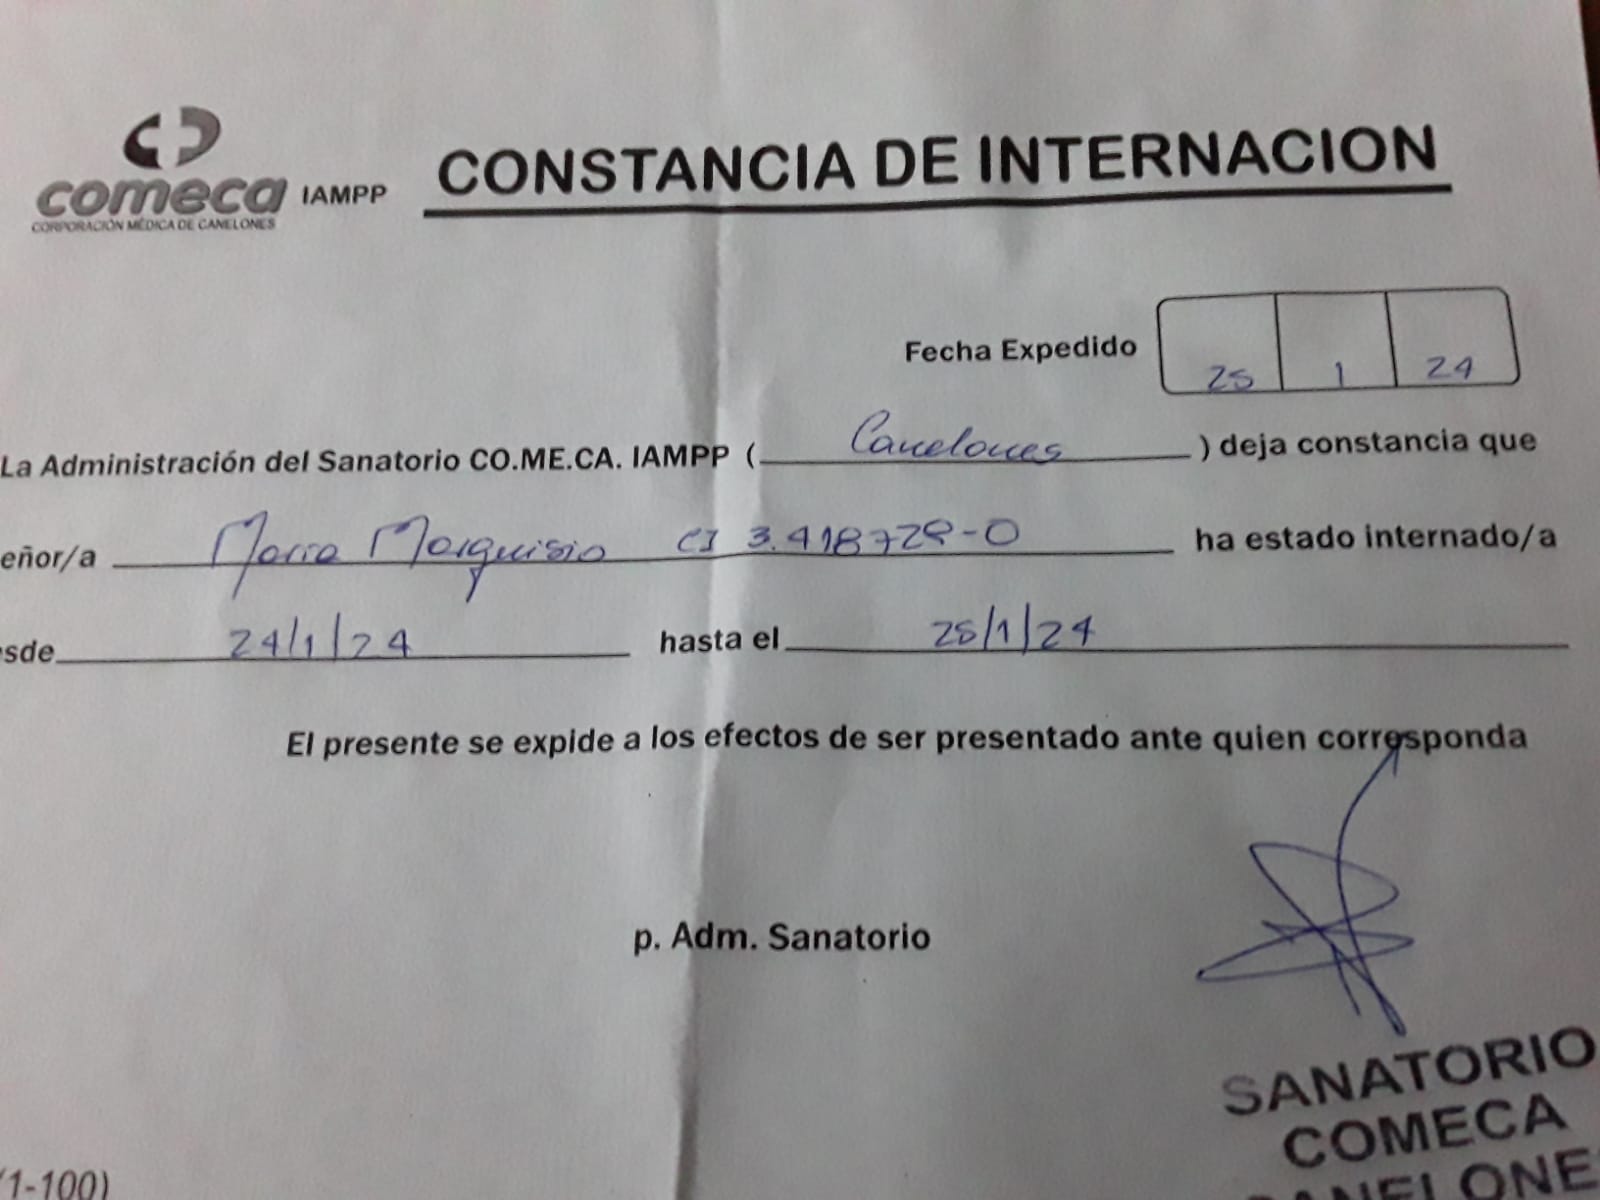 comeca IAMPP
CORPORACIÓN MÉDICA DE CANELONES
CONSTANCIA DE INTERNACION
Fecha Expedido 25 1 24
La Administración del Sanatorio CO.ME.CA. IAMPP ( Canelones ) deja constancia que
eñor/a Maria Marquisio CI 3.418728-0 ha estado internado/a
sde 24/1/24 hasta el 25/1/24
El presente se expide a los efectos de ser presentado ante quien corresponda
p. Adm. Sanatorio
SANATORIO
COMECA
CANELONE
(1-100)